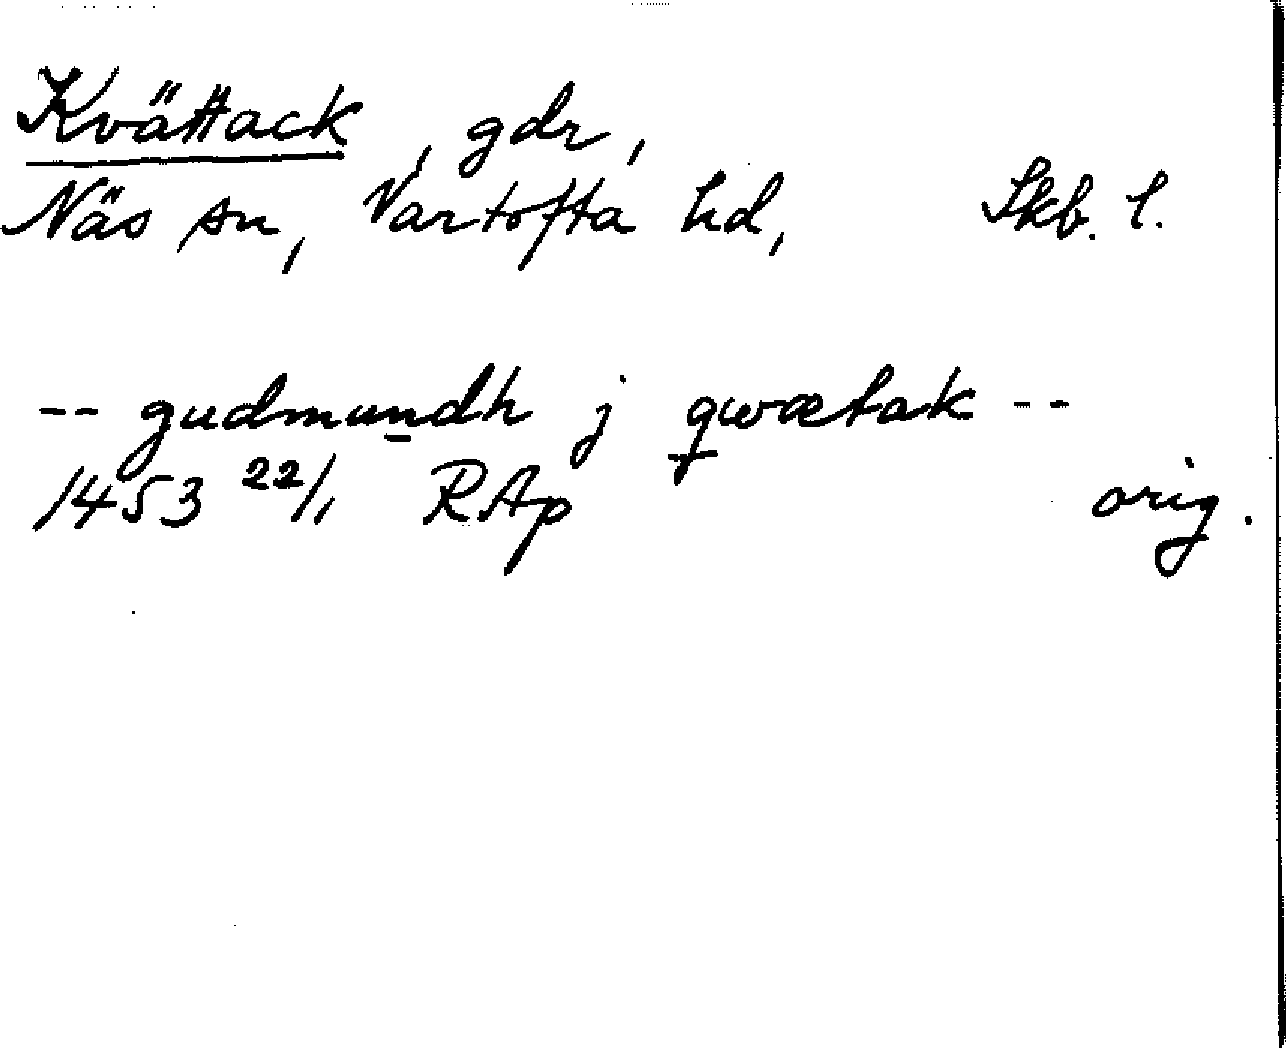 Kvättack, gdr,
Näs sn, Vartofta hd, Skb. l.
-- gudmundh j qwætak --
1453 22/1 RAp orig.